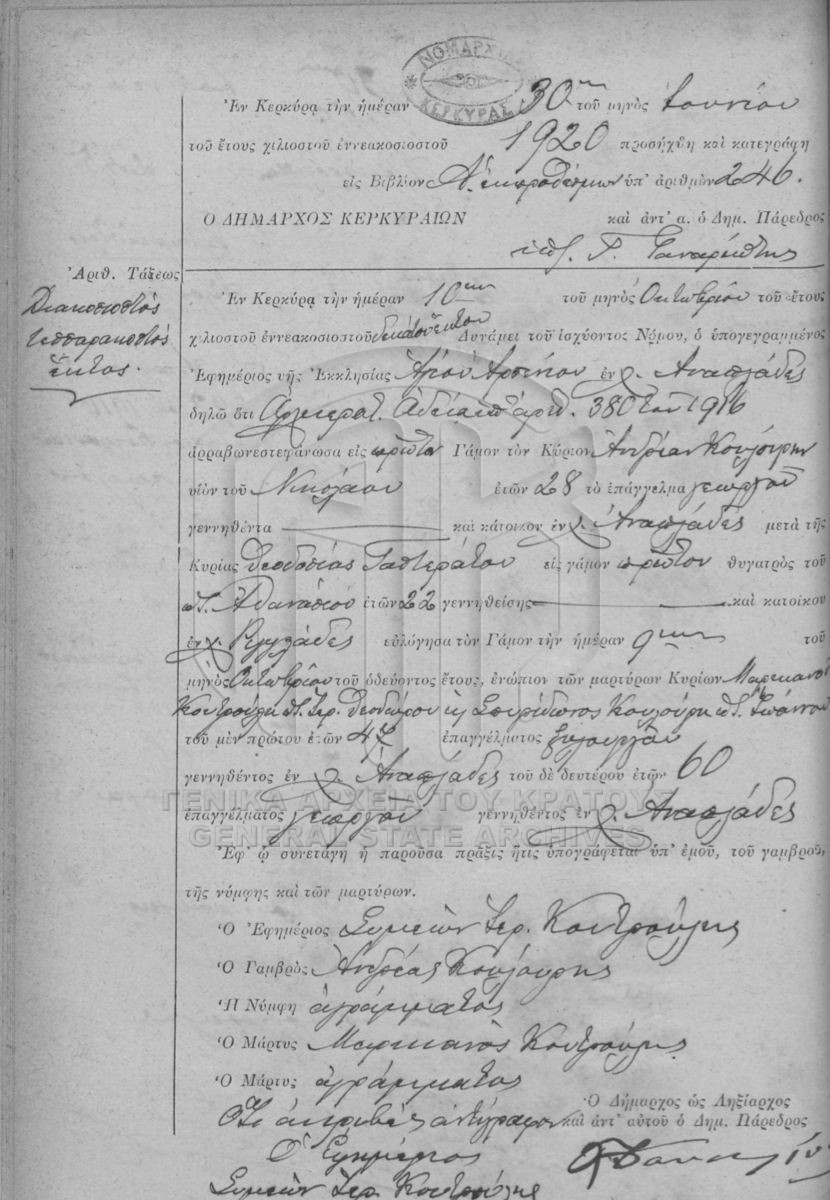 ΝΟΜΑΡΧΙΑ
ΚΕΡΚΥΡΑΣ
Ἐν Κερκύρᾳ τὴν ἡμέραν 30ην τοῦ μηνὸς Ἰουνίου
τοῦ ἔτους χιλιοστοῦ ἐννεακοσιοστοῦ 1920 προσήχθη καὶ κατεγράφη
εἰς Βιβλίον Α. ἐκπροθέσμων ὑπ' ἀριθμὸν 246.
Ὁ ΔΗΜΑΡΧΟΣ ΚΕΡΚΥΡΑΙΩΝ καὶ ἀντ' α. ὁ Δημ. Πάρεδρος
Ἀριθ. Τάξεως
Διακοσιοστὸς
τεσσαρακοστὸς
ἕκτος.
Ἐν Κερκύρᾳ τὴν ἡμέραν 10ην τοῦ μηνὸς Ὀκτωβρίου τοῦ ἔτους
χιλιοστοῦ ἐννεακοσιοστοῦ δεκάτου ἕκτου Δυνάμει τοῦ ἰσχύοντος Νόμου, ὁ ὑπογεγραμμένος
Ἐφημέριος τῆς Ἐκκλησίας Ἁγίου Ἀρσενίου ἐν χ. Ἀναπλάδες
δηλῶ ὅτι Ἀρχιερατ. ἀδείᾳ ὑπ' ἀριθ. 380 τοῦ 1916
ἀρραβωνεστεφάνωσα εἰς πρῶτον Γάμον τὸν Κύριον Ἀνδρέαν Κουλούρην
υἱὸν τοῦ Νικολάου ἐτῶν 28 τὸ ἐπάγγελμα γεωργοῦ
γεννηθέντα καὶ κάτοικον ἐν χ. Ἀναπλάδες μετὰ τῆς
Κυρίας Θεοδοσίας Γαστεράτου εἰς γάμον πρῶτον θυγατρὸς τοῦ
π. Ἀθανασίου ἐτῶν 22 γεννηθείσης καὶ κατοίκου
ἐν χ. εὐλόγησα τὸν Γάμον τὴν ἡμέραν 9ην τοῦ
μηνὸς Ὀκτωβρίου τοῦ ὁδεύοντος ἔτους, ἐνώπιον τῶν μαρτύρων Κυρίων Μαρκιανοῦ
Κοντρούλη π. Ἱερ. Θεοδώρου κ Σπυρίδωνος Κουλούρη π. Ἰωάννου
τοῦ μὲν πρώτου ἐτῶν 47 ἐπαγγέλματος ξυλουργοῦ
γεννηθέντος ἐν χ. Ἀναπλάδες τοῦ δὲ δευτέρου ἐτῶν 60
ΓΕΝΙΚΑ ΑΡΧΕΙΑ ΤΟΥ ΚΡΑΤΟΥΣ
ἐπαγγέλματος γεωργοῦ γεννηθέντος ἐν χ. Ἀναπλάδες
GENERAL STATE ARCHIVES
Ἐφ' ᾧ συνετάγη ἡ παροῦσα πρᾶξις ἥτις ὑπογράφεται ὑπ' ἐμοῦ, τοῦ γαμβροῦ,
τῆς νύμφης καὶ τῶν μαρτύρων.
Ὁ Ἐφημέριος Συμεὼν Ἱερ. Κοντρούλης
Ὁ Γαμβρὸς Ἀνδρέας Κουλούρης
Ἡ Νύμφη ἀγράμματος
Ὁ Μάρτυς Μαρκιανὸς Κοντρούλης
Ὁ Μάρτυς ἀγράμματος
Ὁ Δήμαρχος ὡς Ληξίαρχος
Ὅτι ἀκριβὲς ἀντίγραφον καὶ ἀντ' αὐτοῦ ὁ Δημ. Πάρεδρος
Ὁ Ἐφημέριος
Συμεὼν Ἱερ. Κοντρούλης